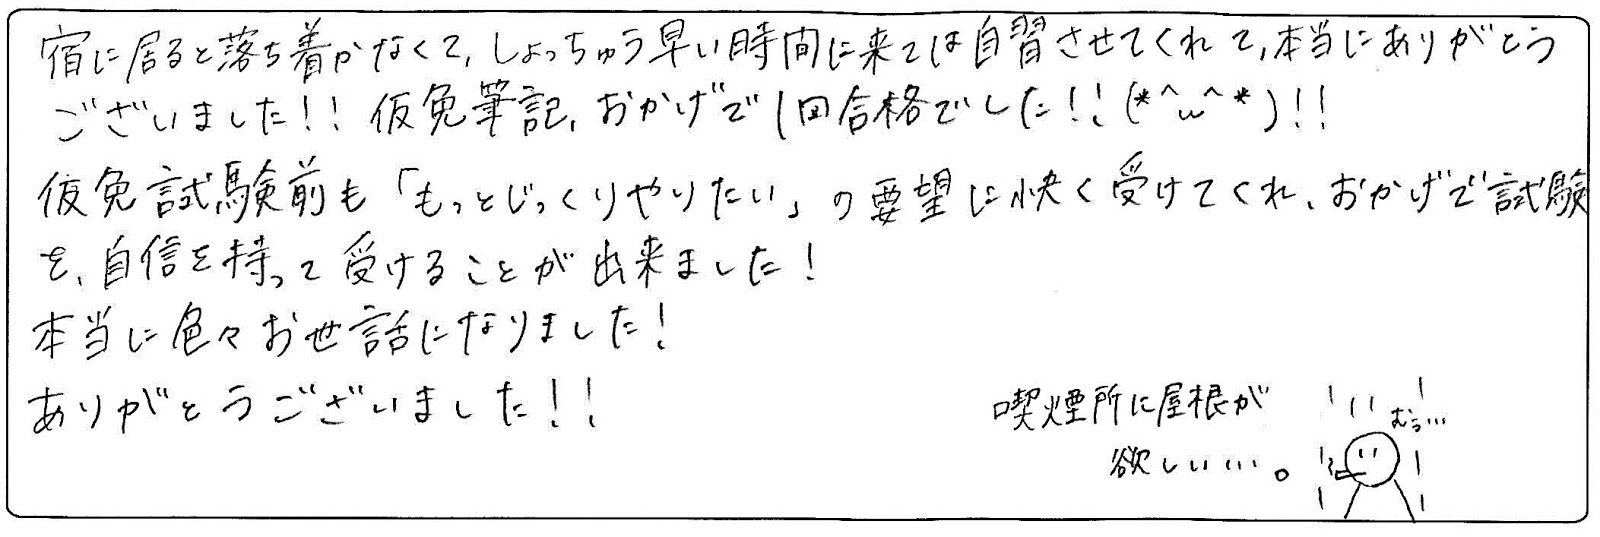 宿に居ると落ち着かなくて、しょっちゅう早い時間に来ては自習させてくれて、本当にありがとう
ございました!! 仮免筆記、おかげで1回合格でした!!(*^ω^*)!!
仮免試験前も「もっとじっくりやりたい」の要望に快く受けてくれ、おかげで試験
を、自信を持って受けることが出来ました!
本当に色々お世話になりました!
ありがとうございました!!
喫煙所に屋根が
欲しい…。
むぅ…